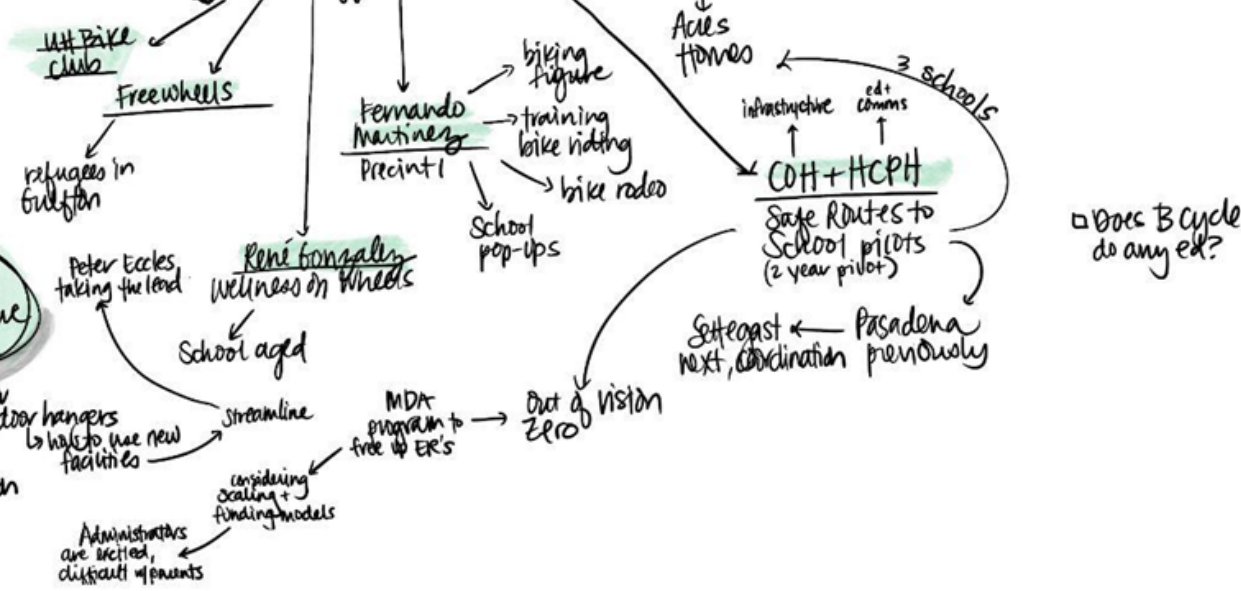 UH Bike
club
Freewheels
refugees in
Gulfton
Fernando
Martinez
Precint 1
biking
figure
training
bike riding
bike rodeo
School
pop-ups
René Gonzalez
Wellness on Wheels
School aged
Acres
Homes
3 schools
infrastructure
ed+
comms
COH + HCPH
Safe Routes to
School pilots
(2 year pilot)
Pasadena
previously
Settegast
next, coordination
Does B cycle
do any ed?
Peter Eccles
taking the lead
door hangers
how to use new
facilities
streamline
MDA
program to
free up ER's
out of vision
zero
considering
scaling +
funding models
Administrators
are excited,
difficult w/ parents